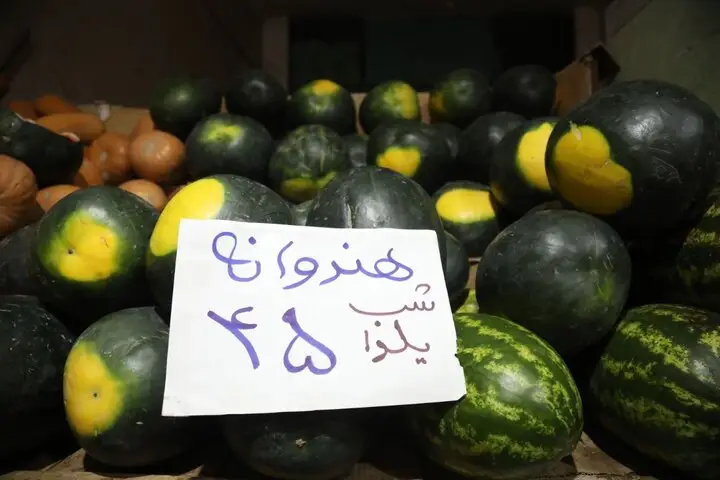 هندوانه
شب
یلدا ۴۵